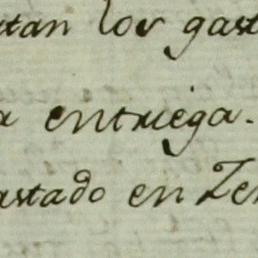 tan los gast
a entriega.
astado en